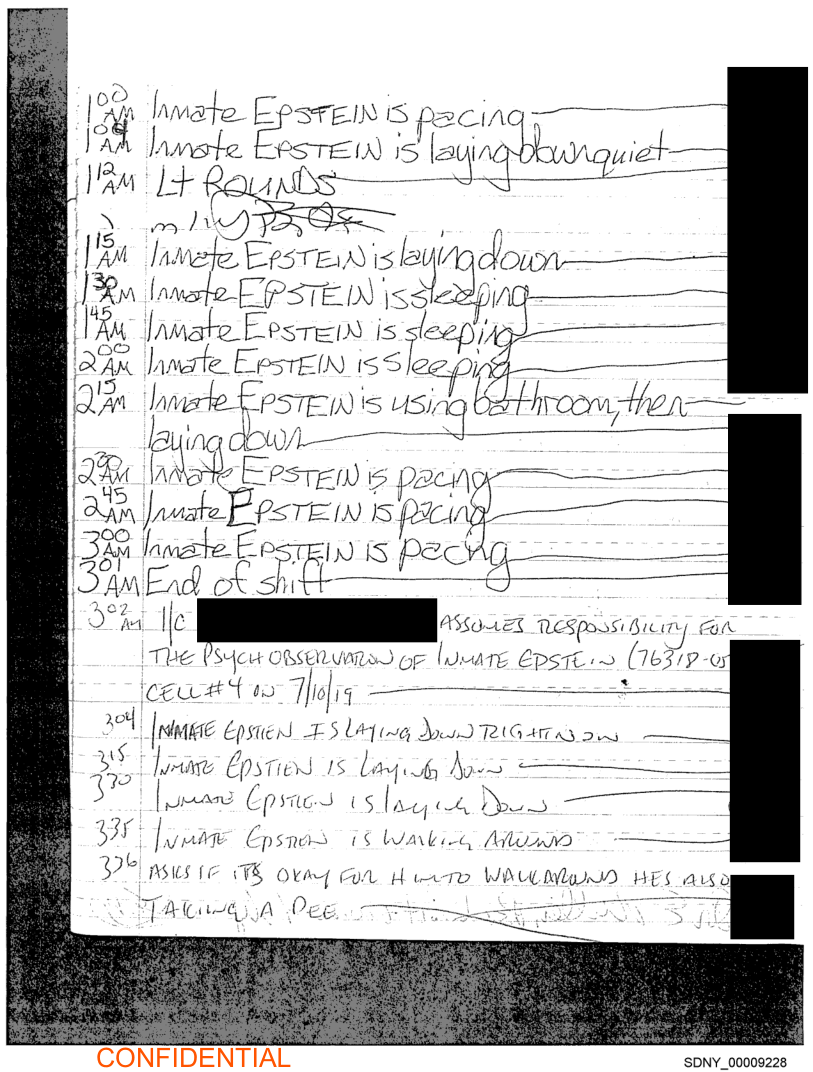 1:00 AM Inmate EPSTEIN is pacing
1:04 AM Inmate EPSTEIN is laying down quiet
1:12 AM Lt ROUNDS
1:15 AM Inmate EPSTEIN is laying down
1:30 AM Inmate EPSTEIN is sleeping
1:45 AM Inmate EPSTEIN is sleeping
2:00 AM Inmate EPSTEIN is sleeping
2:15 AM Inmate EPSTEIN is using bathroom, then
laying down
2:30 AM Inmate EPSTEIN is pacing
2:45 AM Inmate EPSTEIN is pacing
3:00 AM Inmate EPSTEIN is pacing
3:01 AM End of shift
3:02 AM I/C ASSUMES RESPONSIBILITY FOR
THE PSYCH OBSERVATION OF INMATE EPSTEIN (76318-05
CELL #4 ON 7/10/19
304 INMATE EPSTIEN IS LAYING DOWN RIGHT NOW
315 INMATE EPSTIEN IS LAYING DOWN
330 INMATE EPSTIEN IS LAYING DOWN
335 INMATE EPSTIEN IS WALKING AROUND
336 ASKS IF IT'S OKAY FOR HIM TO WALK AROUND HES ALSO
TAKING A PEE
CONFIDENTIAL
SDNY_00009228